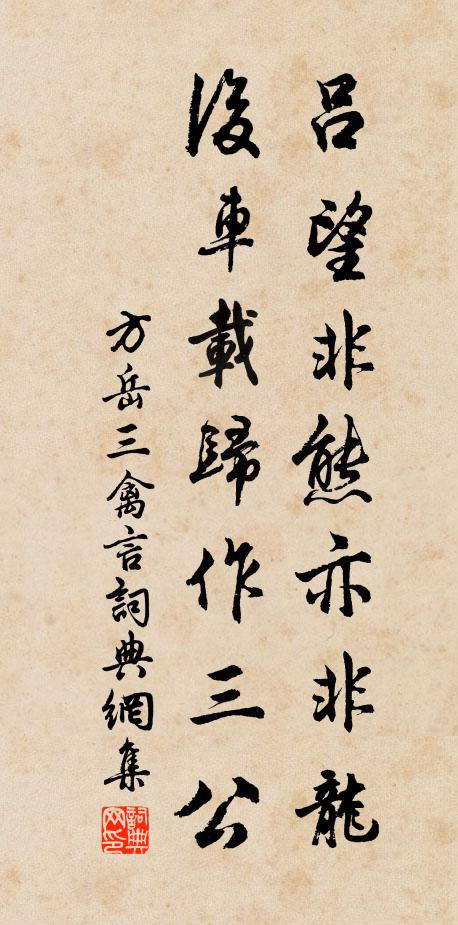 吕望非熊亦非龍
後車載歸作三公
方岳三禽言詞典網集
詞典网印